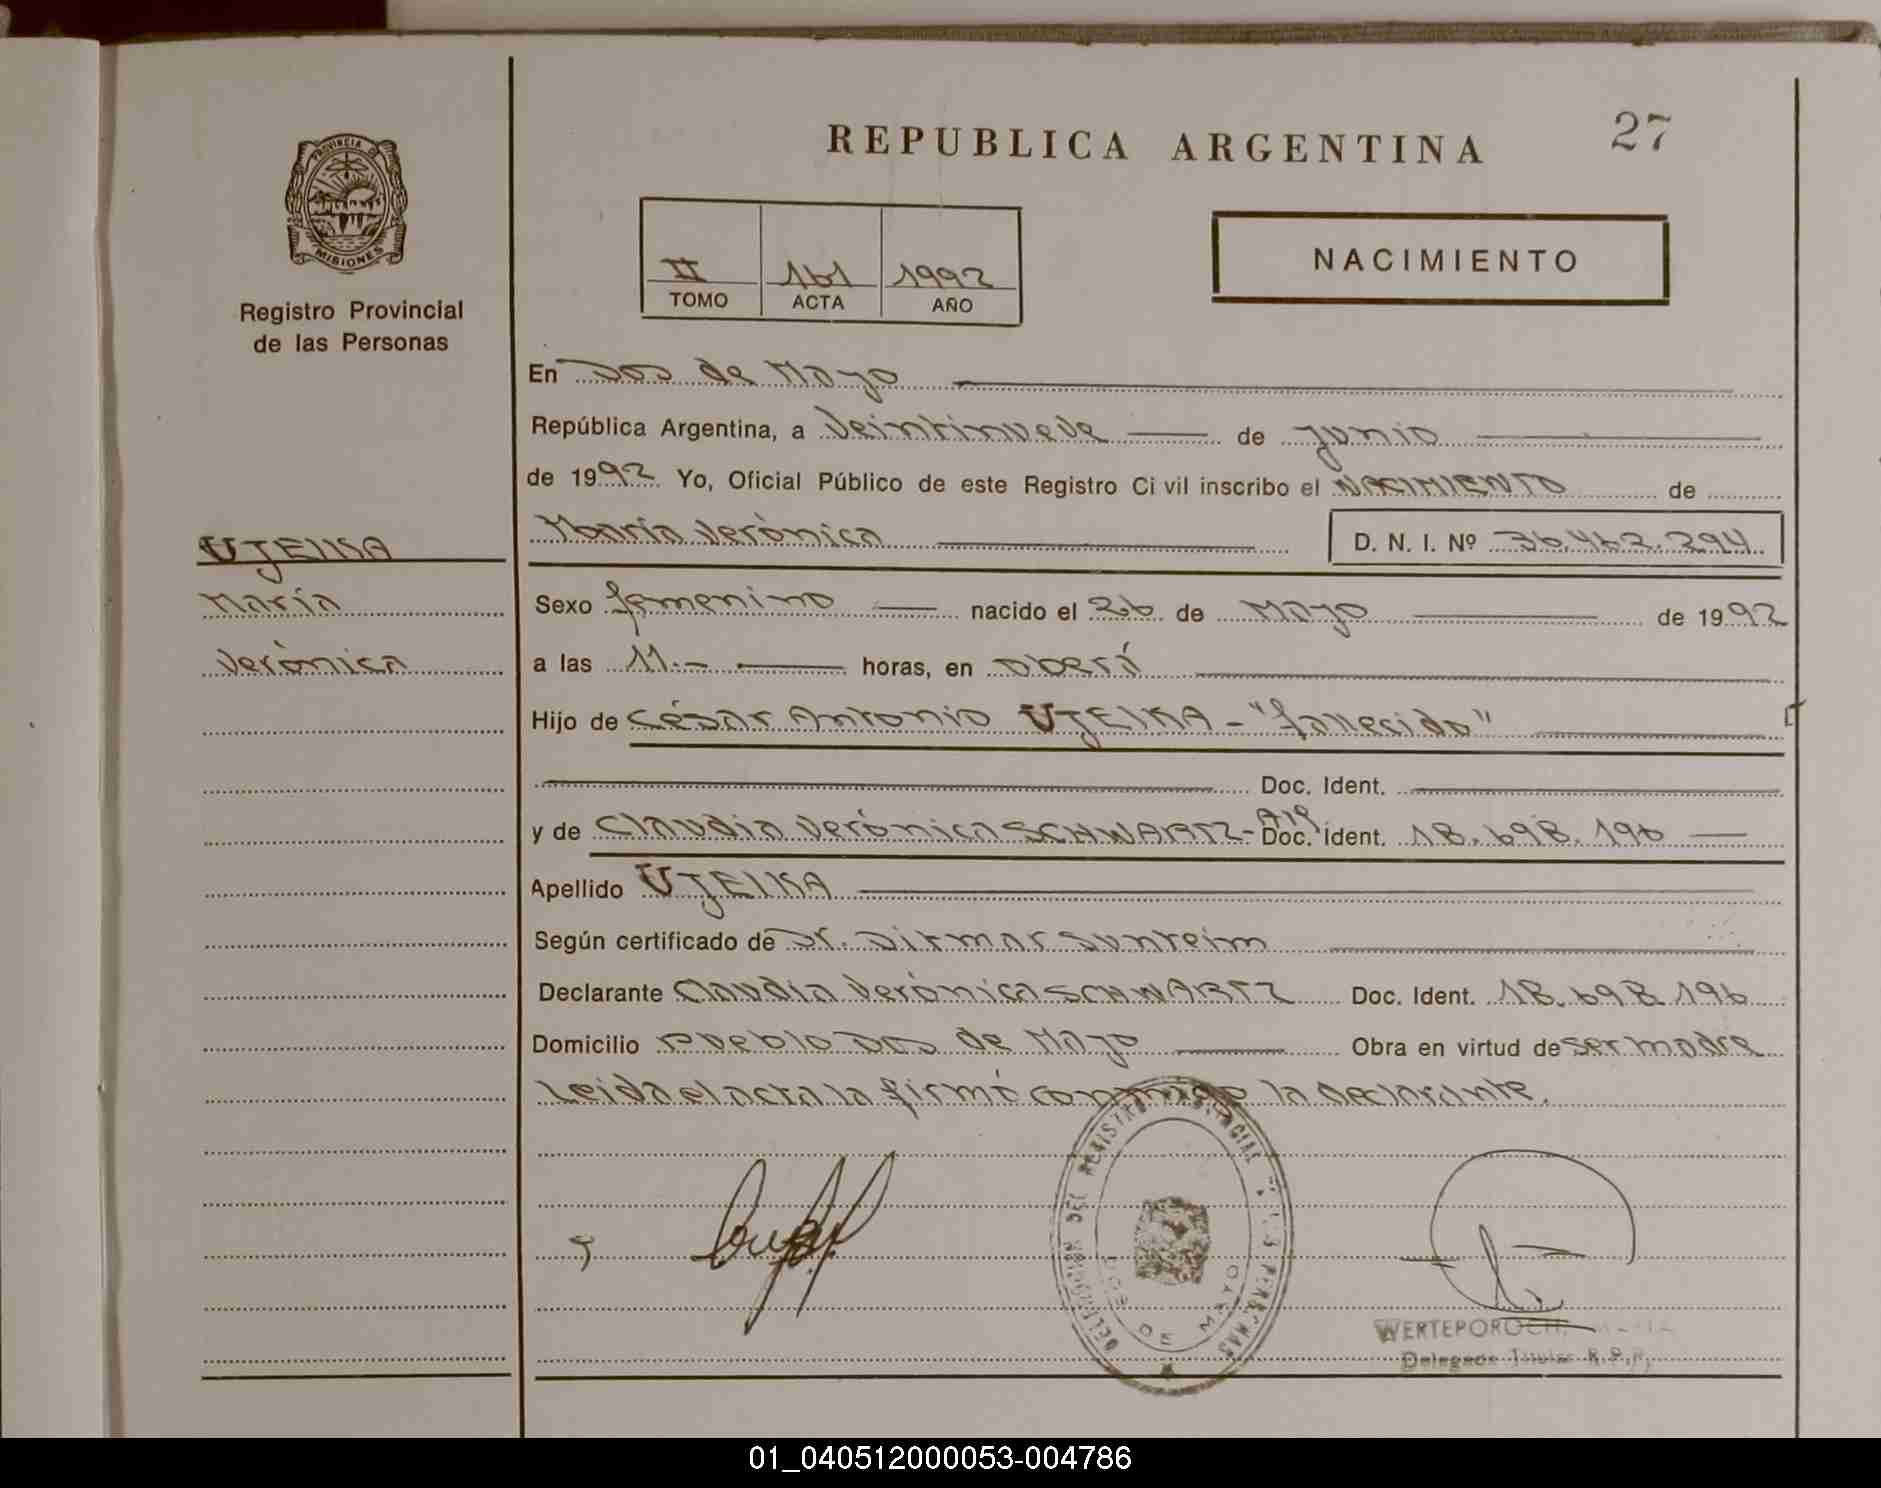 27
REPUBLICA ARGENTINA
PROVINCIA DE
MISIONES
Registro Provincial
de las Personas
II 161 1992
TOMO ACTA AÑO
NACIMIENTO
En Dos de Mayo
República Argentina, a Veintinueve de Junio
de 1992 Yo, Oficial Público de este Registro Ci vil inscribo el NACIMIENTO de
María Verónica D. N. I. Nº 36.462.294
UJEIKA
María
Verónica
Sexo femenino nacido el 26 de Mayo de 1992
a las 11.- horas, en Oberá
Hijo de César Antonio UJEIKA - "fallecido"
Doc. Ident.
y de Claudia Verónica SCHWARTZ - Doc. Ident. 18.698.196
Apellido UJEIKA
Según certificado de Dr. Ditmar Sunteim
Declarante Claudia Verónica SCHWARTZ Doc. Ident. 18.698.196
Domicilio Pueblo Dos de Mayo Obra en virtud de ser madre
Leida el acta la firmó conmigo la declarante.
DELEGACION DEL REGISTRO PROVINCIAL DE LAS PERSONAS
DOS DE MAYO
WERTEPOROCH
Delegado Titular R.P.P.
01_040512000053-004786